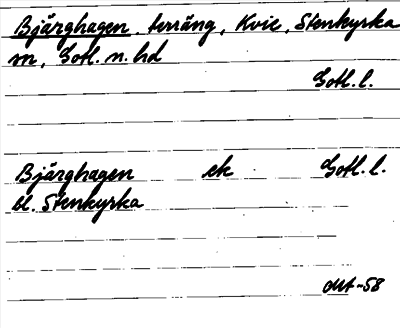 Bjärghagen, terräng, Kvie, Stenkyrka
sn, Gotl. n. hd
Gotl. l.
Bjärghagen ek Gotl. l.
bl. Stenkyrka
-58